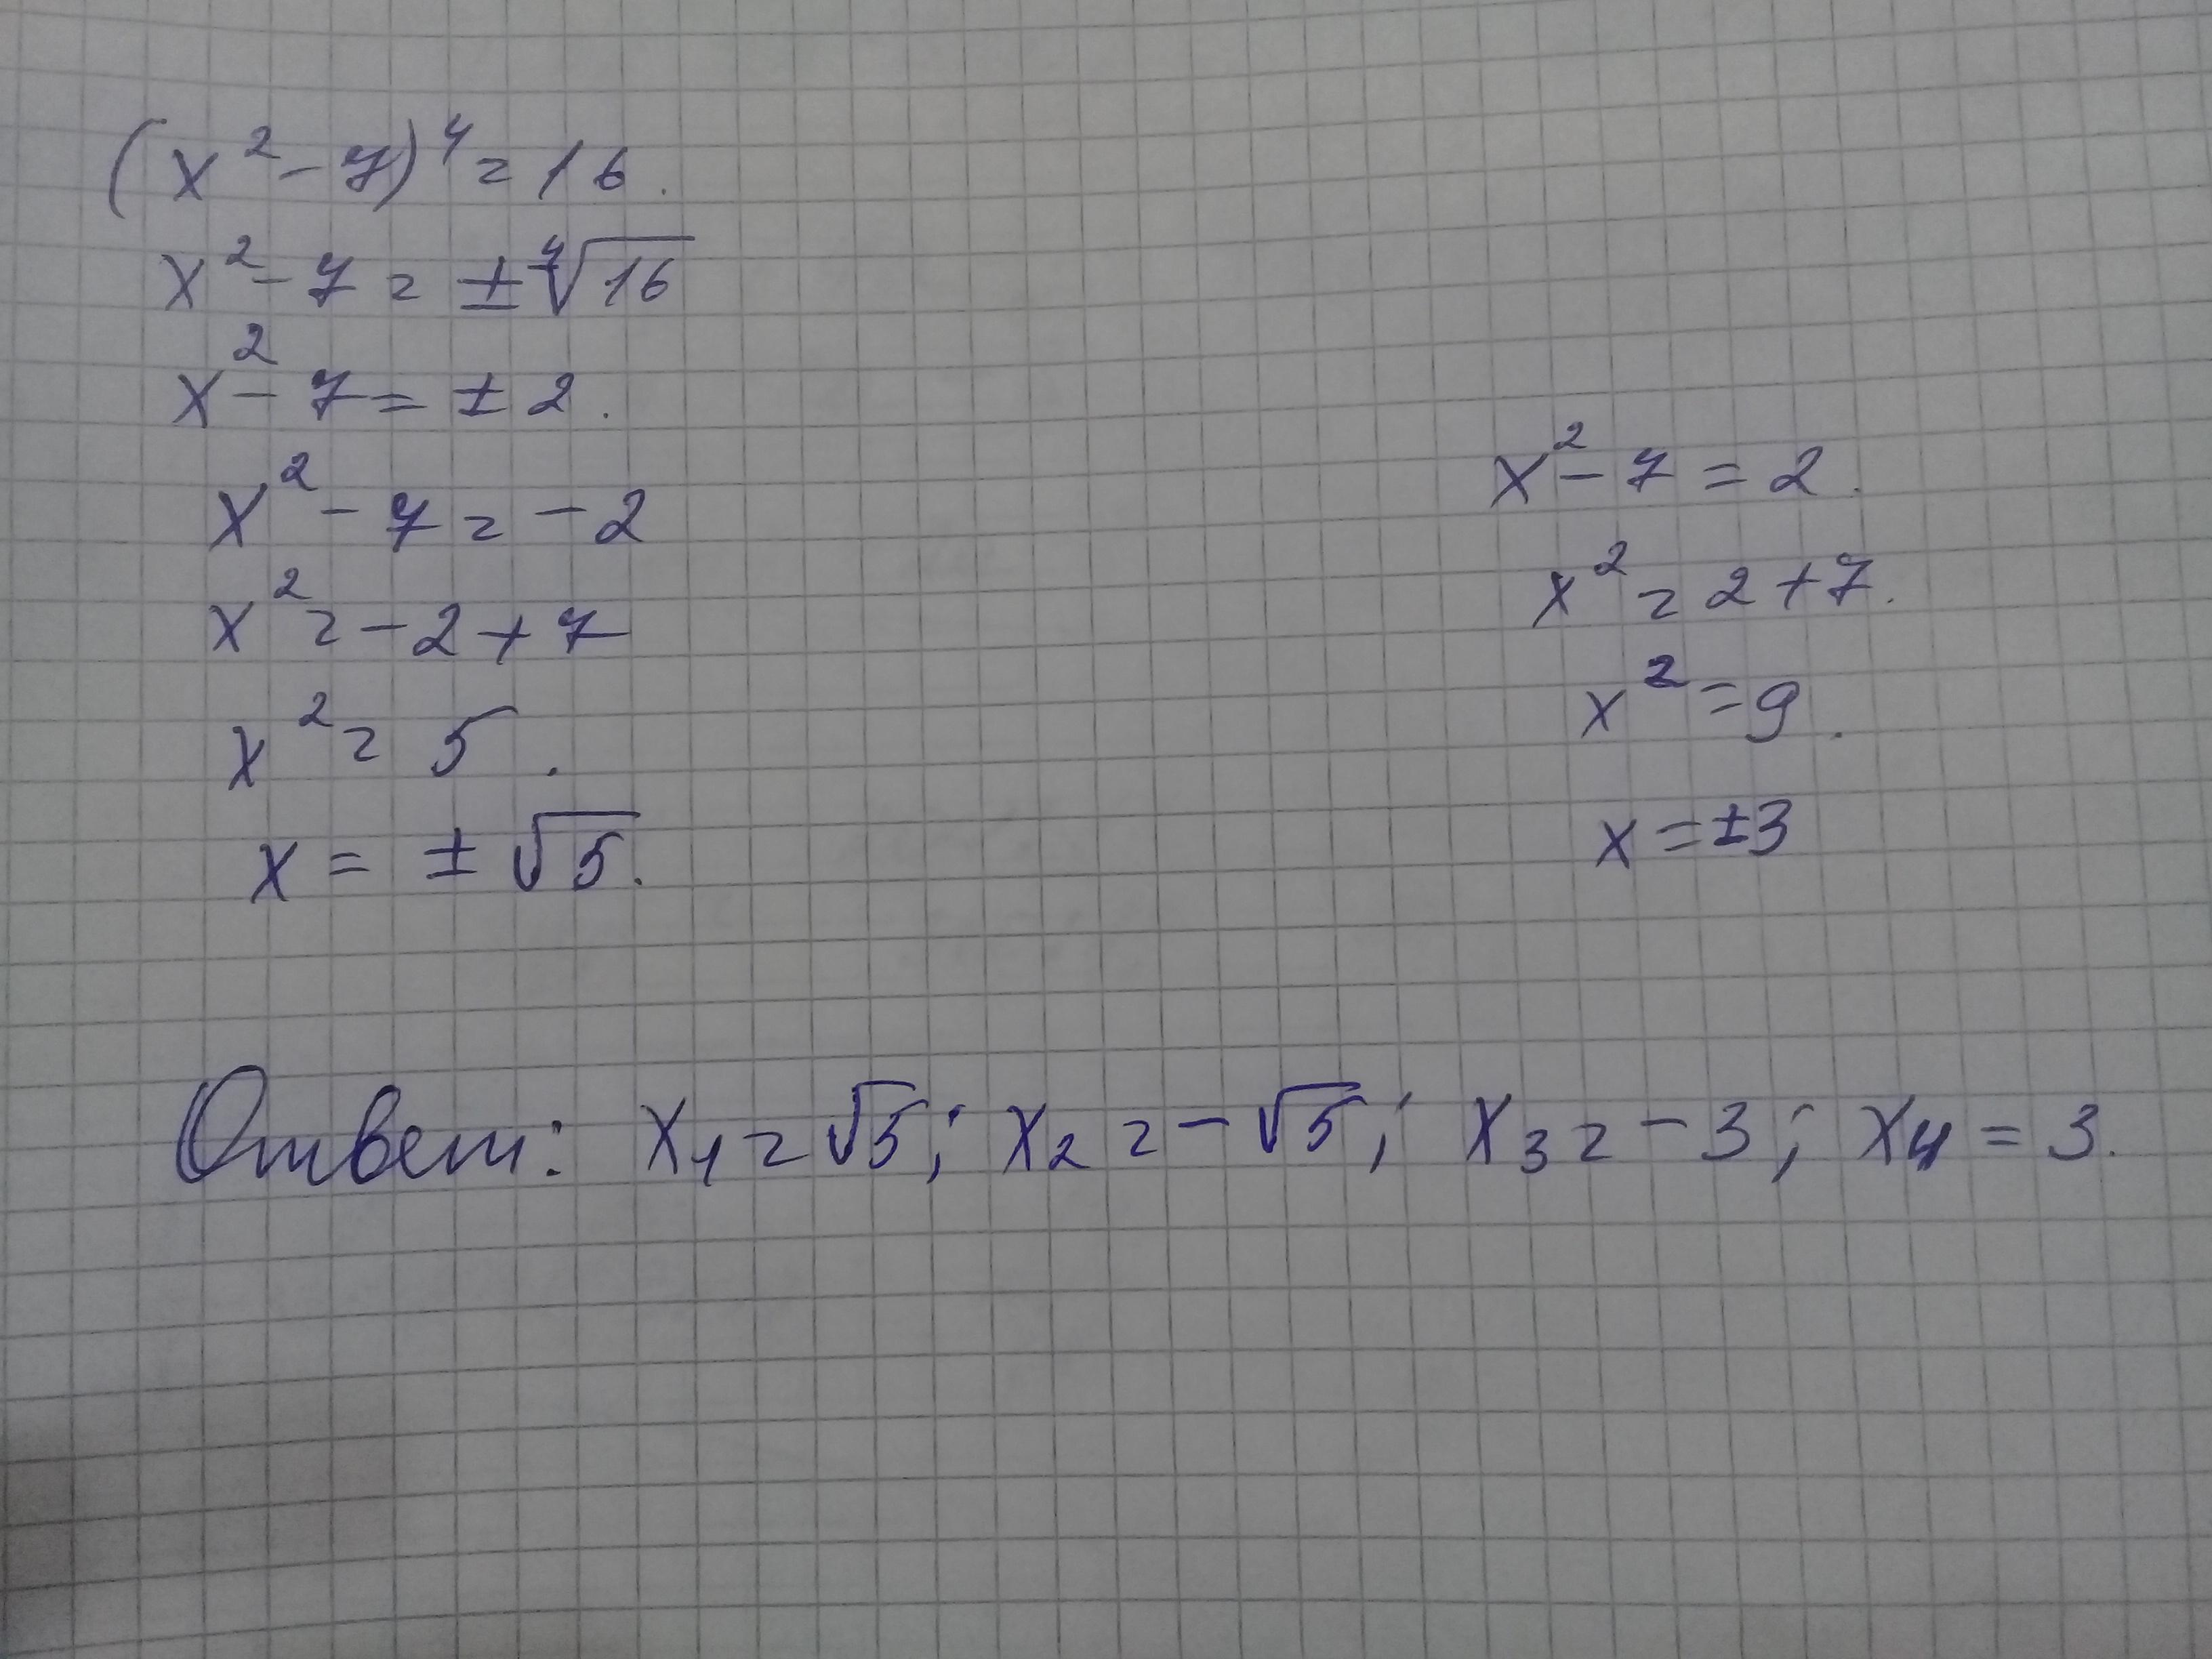 (x² - 7)⁴ = 16.
x² - 7 = ± ⁴√16
x² - 7 = ± 2.
x² - 7 = - 2
x² = - 2 + 7
x² = 5.
x = ± √5.
x² - 7 = 2.
x² = 2 + 7.
x² = 9.
x = ±3
Ответ: x₁ = √5; x₂ = - √5; x₃ = - 3; x₄ = 3.